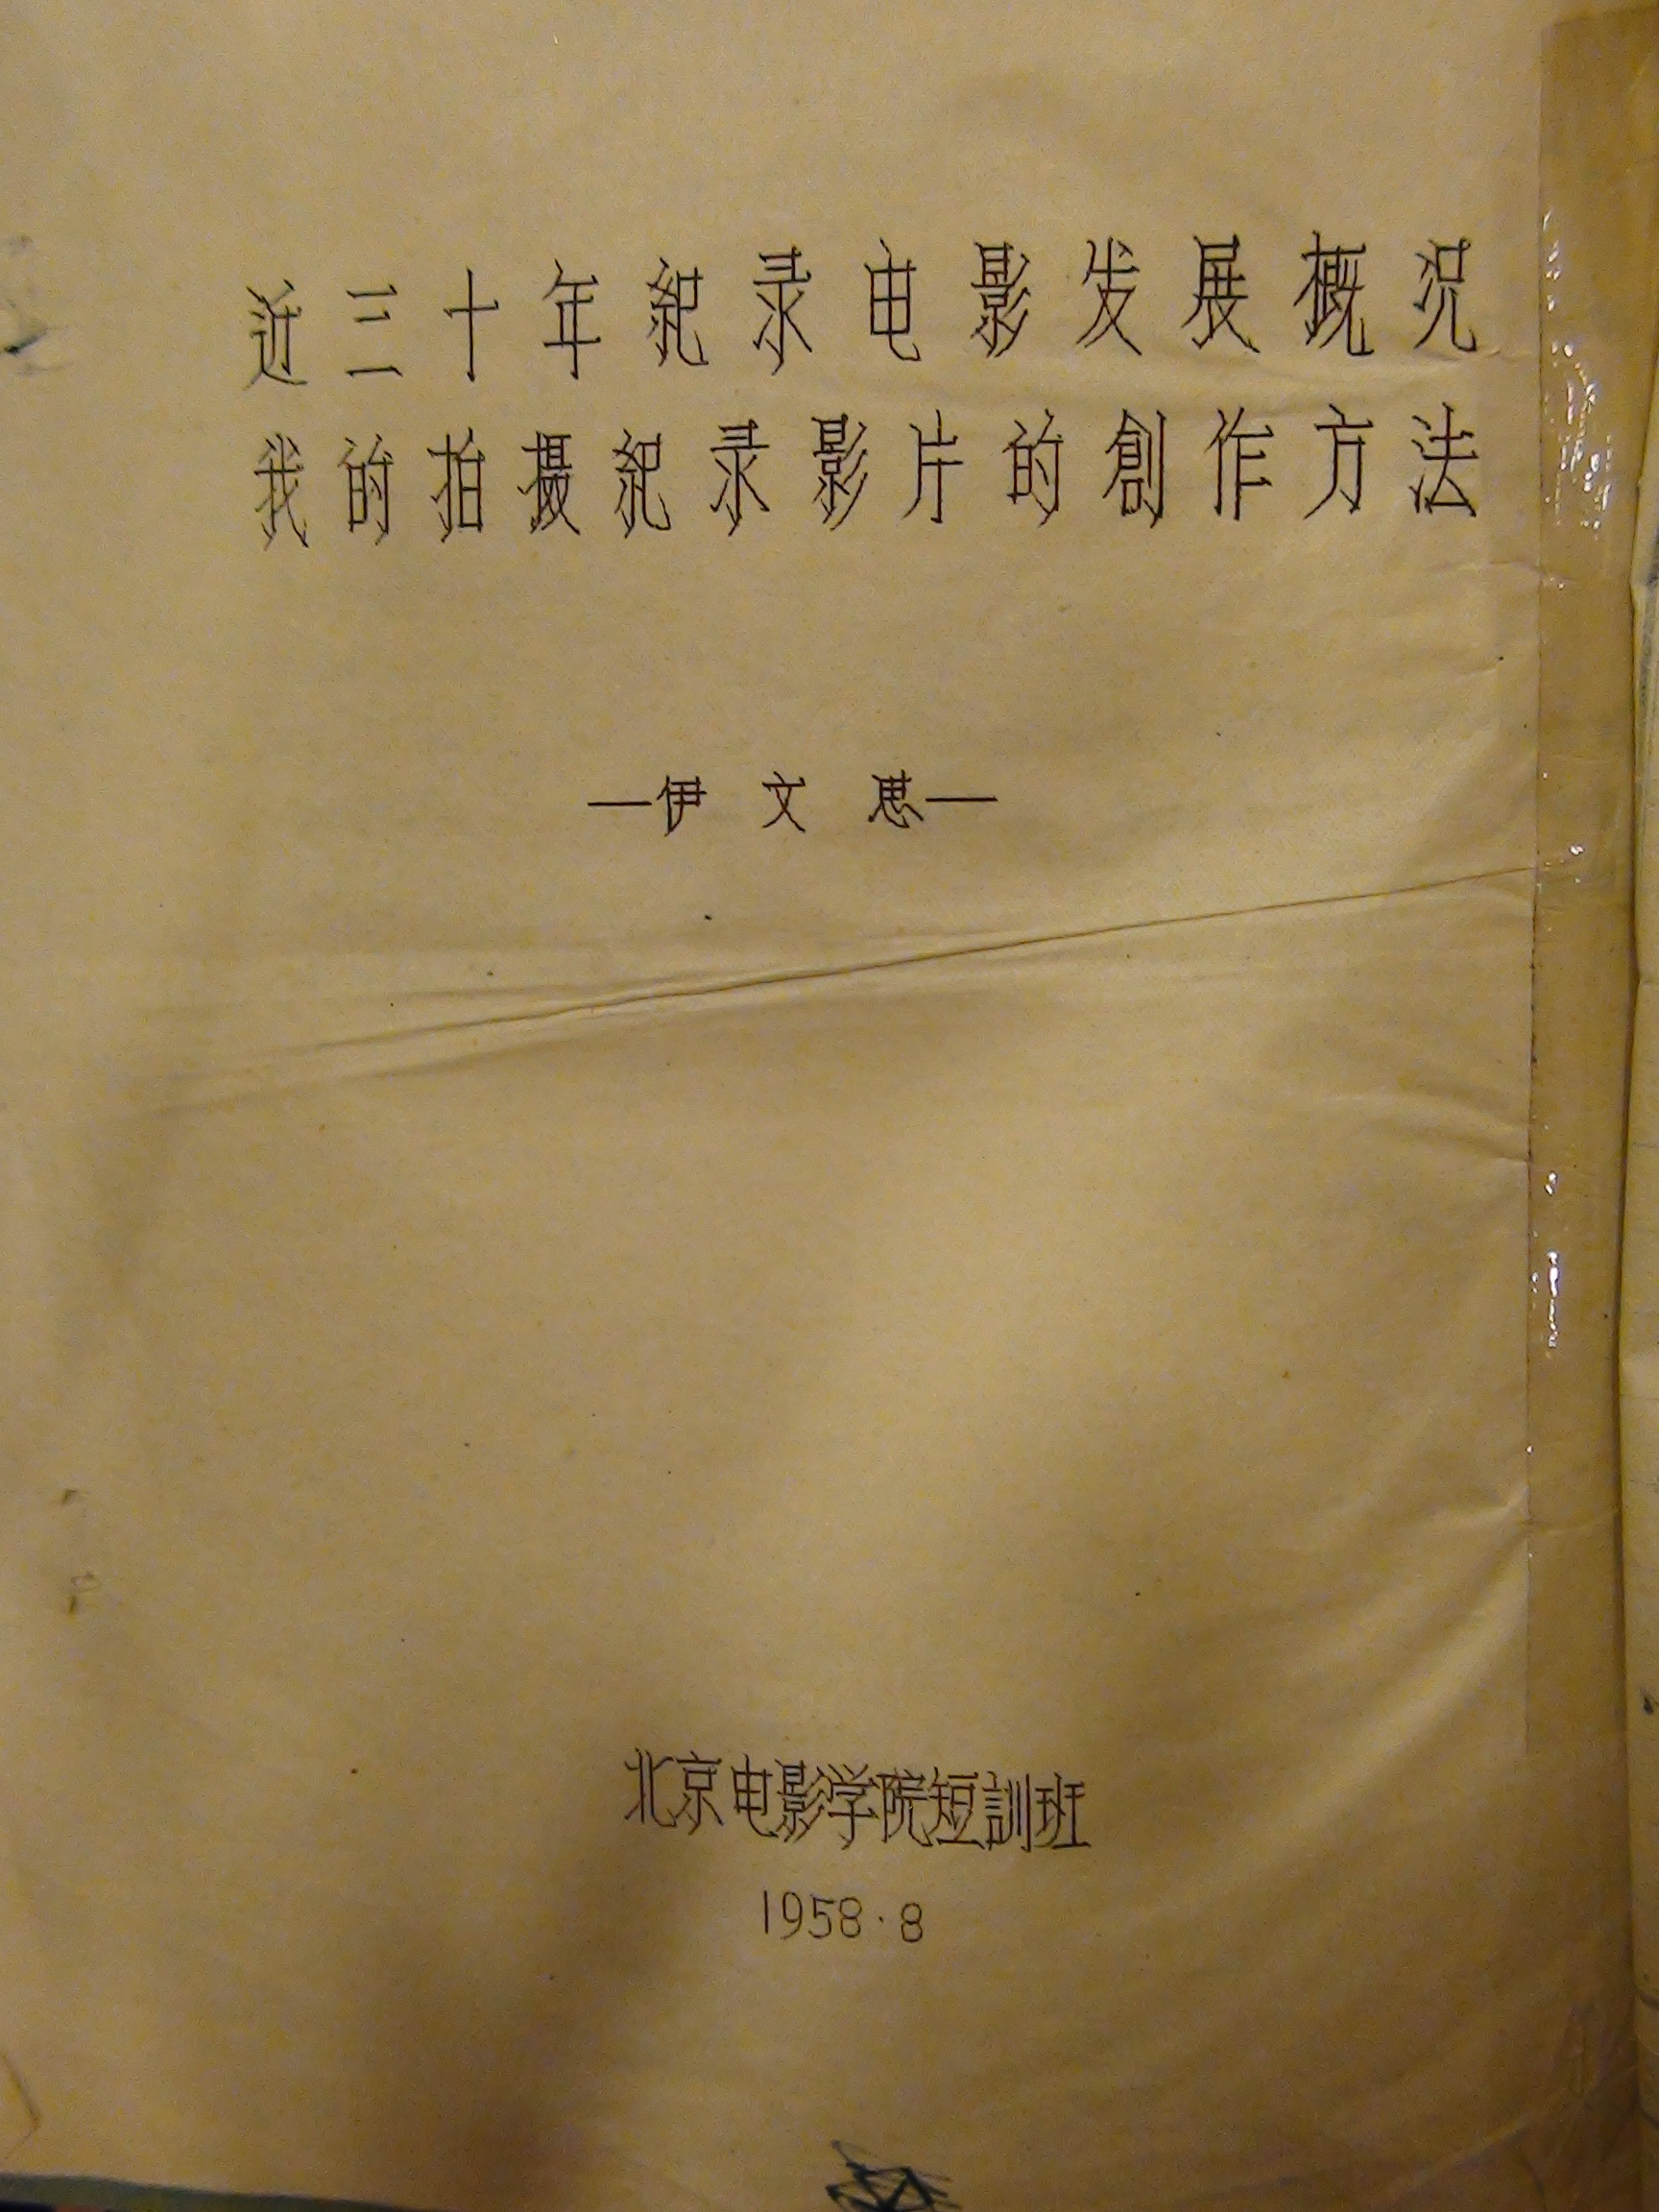 近三十年紀录电影发展概况
我的拍摄紀录影片的創作方法
—伊文思—
北京电影学院短訓班
1958·8